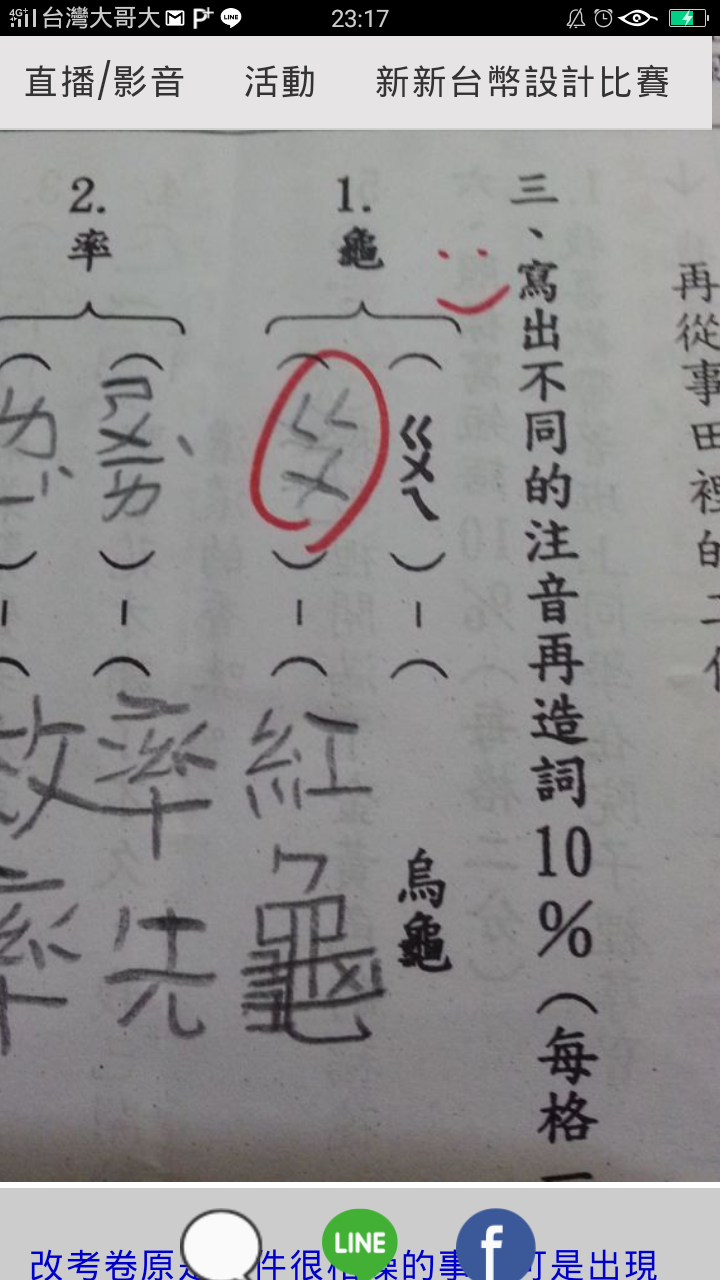 4G+ 台灣大哥大 P+ LINE 23:17
直播/影音 活動 新新台幣設計比賽
再從事田裡的工作
三、寫出不同的注音再造詞10%（每格
1. 龜
（ㄍㄨㄟ）－（烏龜
（ㄍㄨ）－（紅龜
2. 率
（ㄕㄨㄞˋ）－（率先
（ㄌ
效率
LINE f
改考卷原是
件很
的事
可是出現